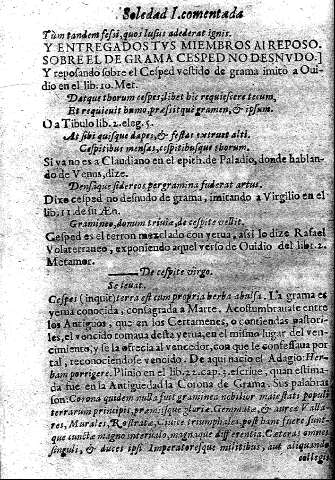 Soledad I. comentada
Tùm tandem fessi, quos lusus adederat ignis.
Y ENTREGADOS TVS MIEMBROS AI REPOSO.
SOBRE EL DE GRAMA CESPED NO DESNVDO.]
Y reposando sobre el Cesped vestido de grama imitò a Oui-
dio en el lib. 10. Met.
Datque thorum cespes, libet hic requiescere tecum,
Et requieuit humo, præssitque gramen, & ipsum.
O a Tibulo lib. 2. eleg. 5.
At sibi quisque dapes, & festas extruit altè
Cespitibus mensas, cespitibusque thorum.
Si ya no es a Claudiano en el epith. de Paladio, donde hablan-
do de Venus, dize.
Densaque sidereos per gramina fuderat artus.
Dixo cesped no desnudo de grama, imitando a Virgilio en el
lib. 11. de su Æn.
Gramineo, donum triuiæ, de cespite vellit.
Cesped es el terron mezclado con yerua, assi lo dize Rafael
Volaterraneo, exponiendo aquel verso de Ouidio del lib. 2.
Metamor.
De cespite virgo.
Se leuat.
Cespes (inquit) terra est cum propria herba abulsa. La grama es
yerua conocida, consagrada a Marte. Acostumbrauase entre
los Antiguos, que en los Certamenes, o contiendas pastori-
les, el vencido tomaua desta yerua, en el mismo lugar del ven-
cimiento, y se la ofrecia al vencedor, con que se confessaua por
tal, reconociendose vencido. De aqui nacio el Adagio: Her-
bam porrigere. Plinio en el lib. 22. cap. 3. escriue, quan estima-
da fue en la Antiguedad la Corona de Grama. Sus palabras
son: Corona quidem nulla fuit graminea nobilior maiestati populi
terrarum principis, præmijsque gloriæ. Gemmatæ, & aureæ Valla-
res, Murales, Rostratæ, Ciuicæ triumphales, post hanc fuere sunt-
que cunctæ magno interuallo, magnaque differentia. Cæteras omnes
singuli, & duces ipsi Imperatoresque militibus, aut aliquando
collegis